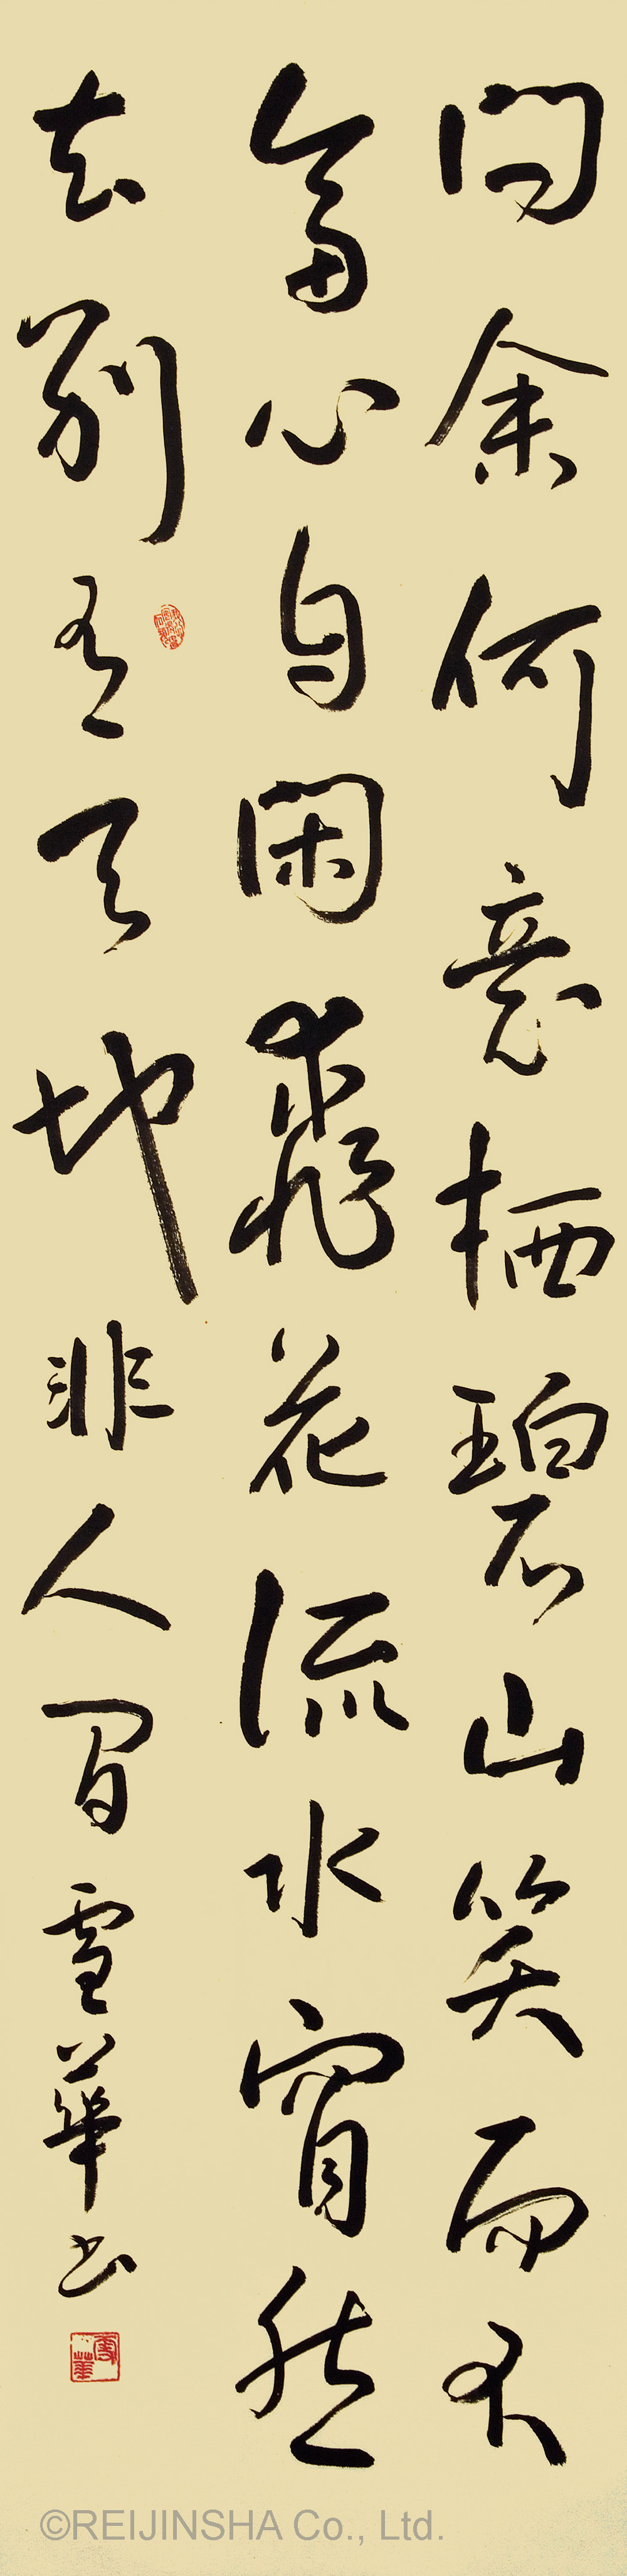 問余何意栖碧山笑而不
畣心自閑桃花流水窅然
去別有天地非人間 雪華書
雪華
©REIJINSHA Co., Ltd.